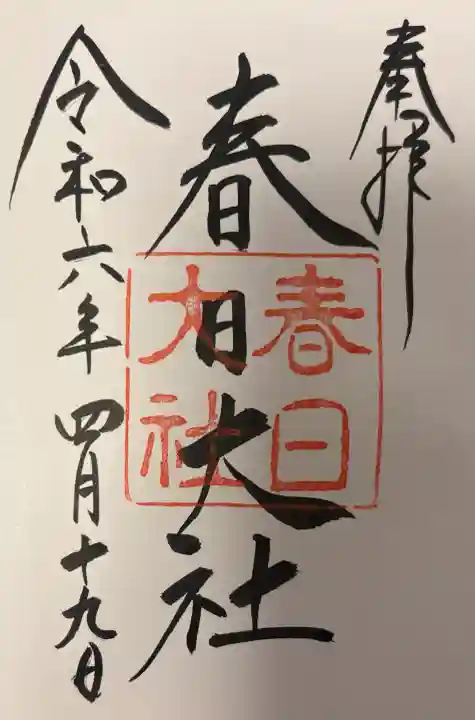 奉拝
春日大社
春日
大社
令和六年 四月十九日